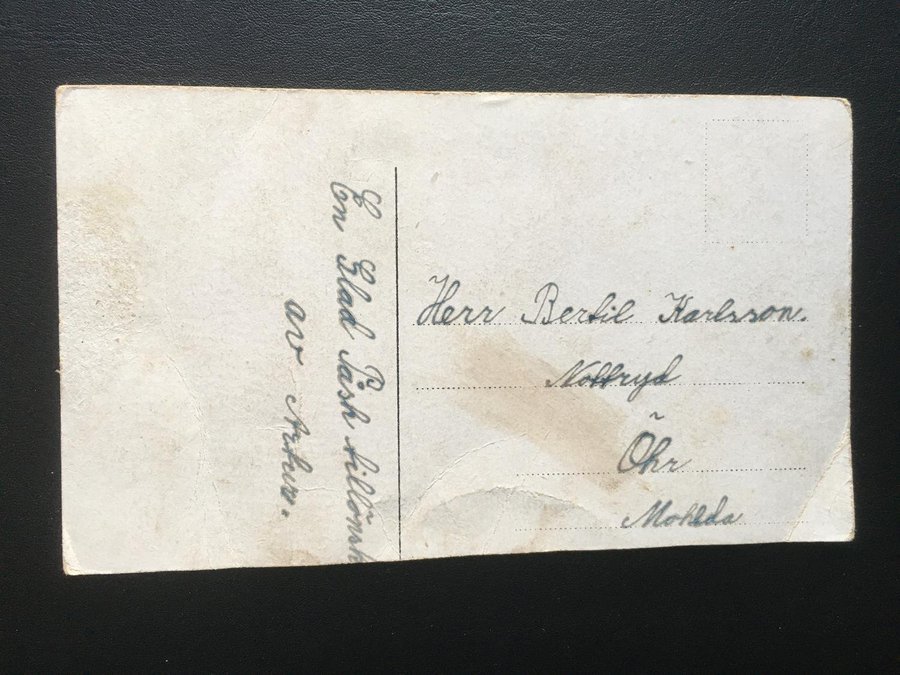 En Glad Påsk tillönsk
av Artur.
Herr Bertil Karlsson.
Nottryd
Öhr
Mohlda